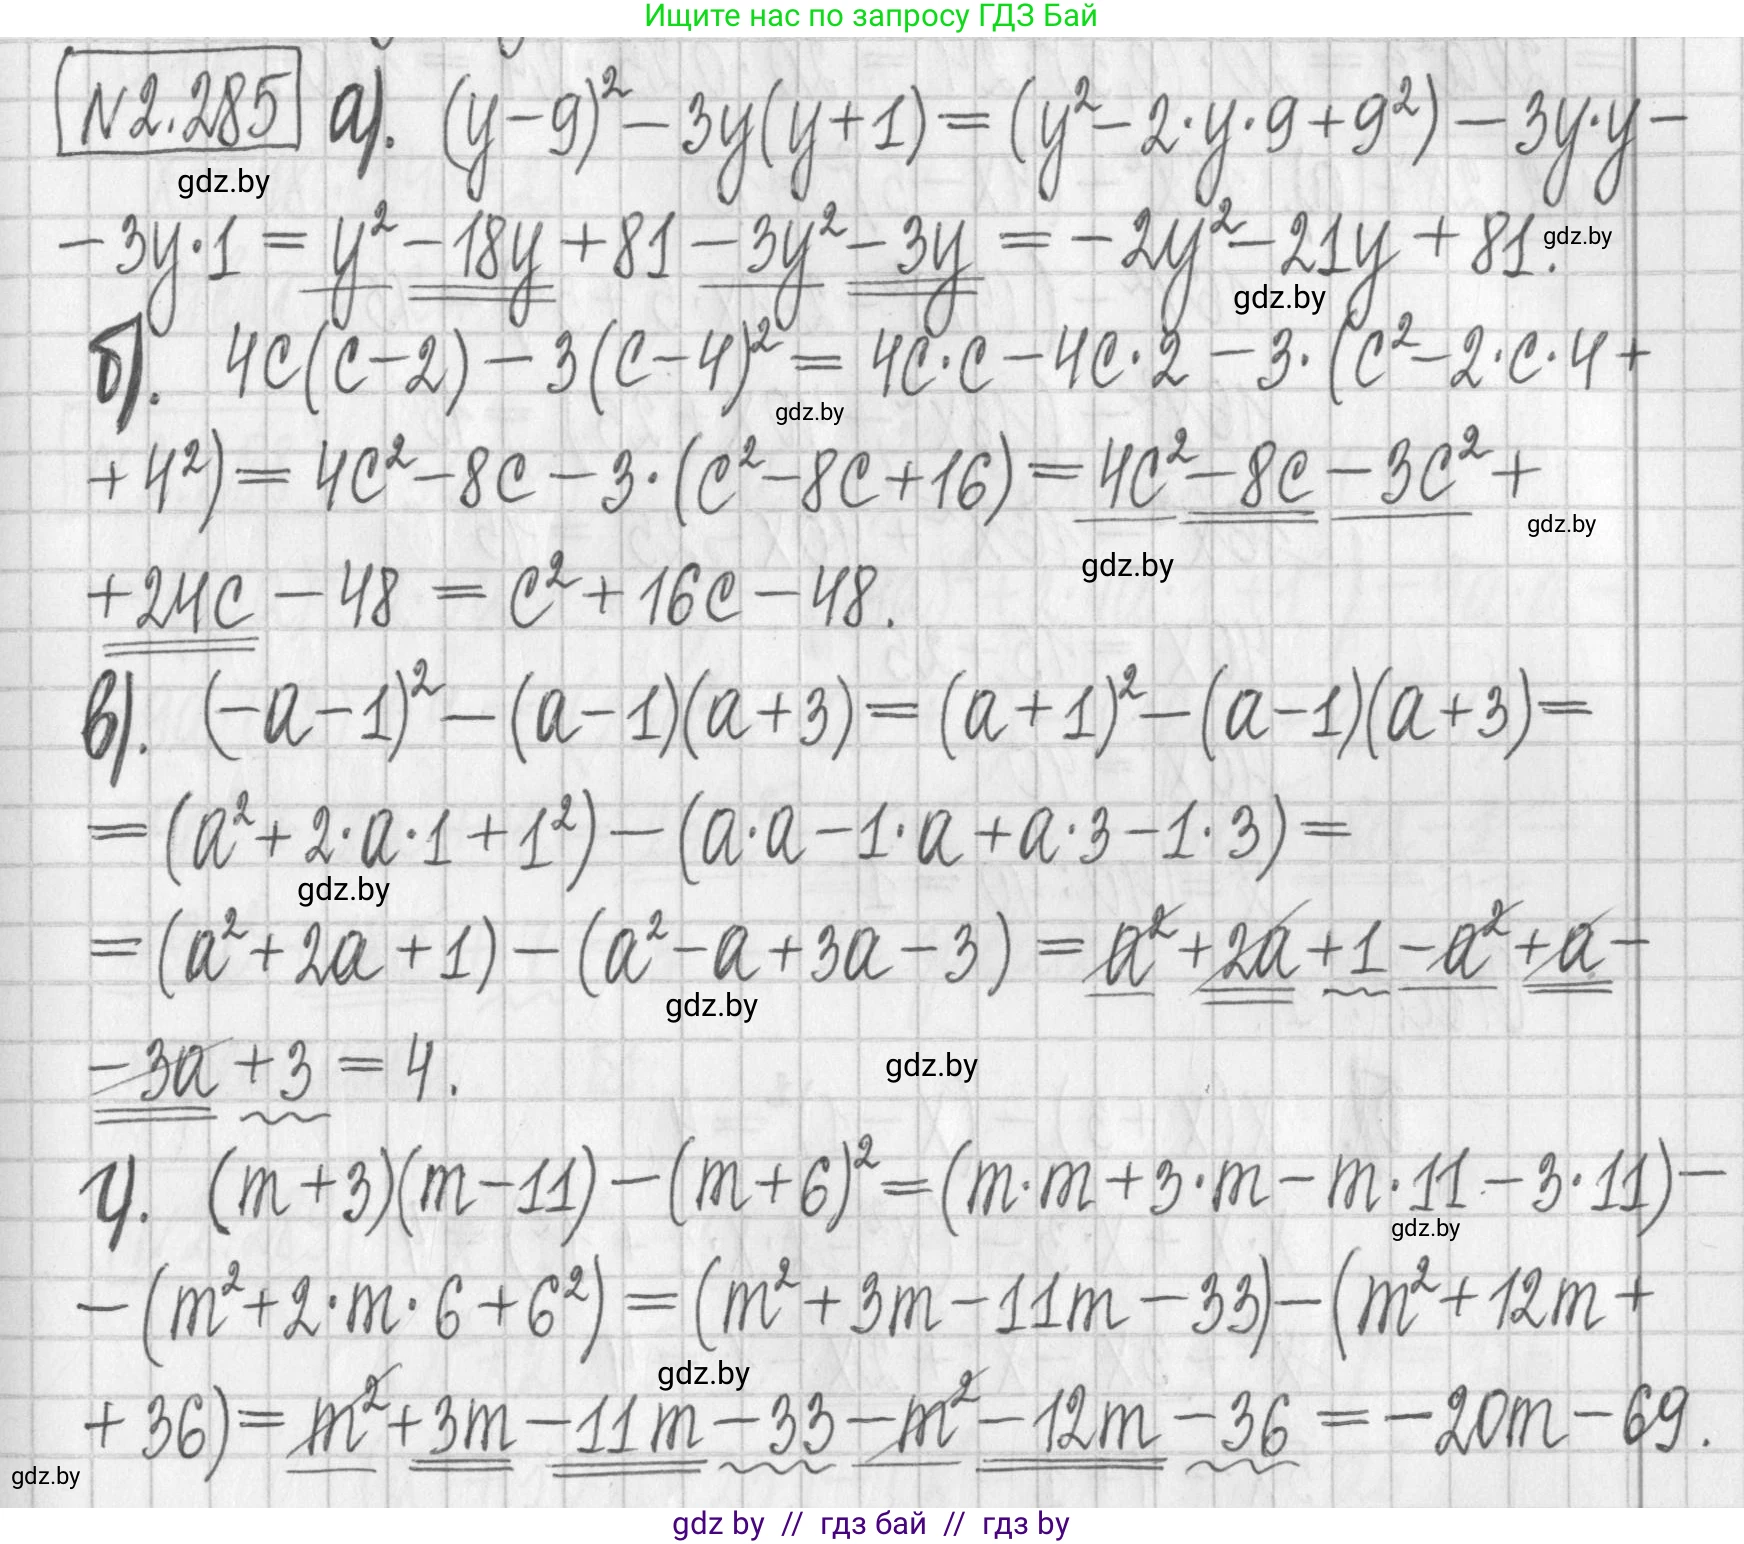 Ищите нас по запросу ГДЗ Бай
N2.285 а). (y-9)²-3y(y+1)=(y²-2·y·9+9²)-3y·y-
gdz.by
-3y·1=y²-18y+81-3y²-3y=-2y²-21y+81.
gdz.by
gdz.by
б). 4c(c-2)-3(c-4)²=4c·c-4c·2-3·(c²-2·c·4+
gdz.by
+4²)=4c²-8c-3·(c²-8c+16)=4c²-8c-3c²+
gdz.by
gdz.by
+24c-48=c²+16c-48.
в). (-a-1)²-(a-1)(a+3)=(a+1)²-(a-1)(a+3)=
=(a²+2·a·1+1²)-(a·a-1·a+a·3-1·3)=
gdz.by
=(a²+2a+1)-(a²-a+3a-3)=a²+2a+1-a²+a-
gdz.by
-3a+3=4.
gdz.by
г). (m+3)(m-11)-(m+6)²=(m·m+3·m-m·11-3·11)-
gdz.by
-(m²+2·m·6+6²)=(m²+3m-11m-33)-(m²+12m+
gdz.by
+36)=m²+3m-11m-33-m²-12m-36=-20m-69.
gdz.by
gdz by // гдз бай // гдз by